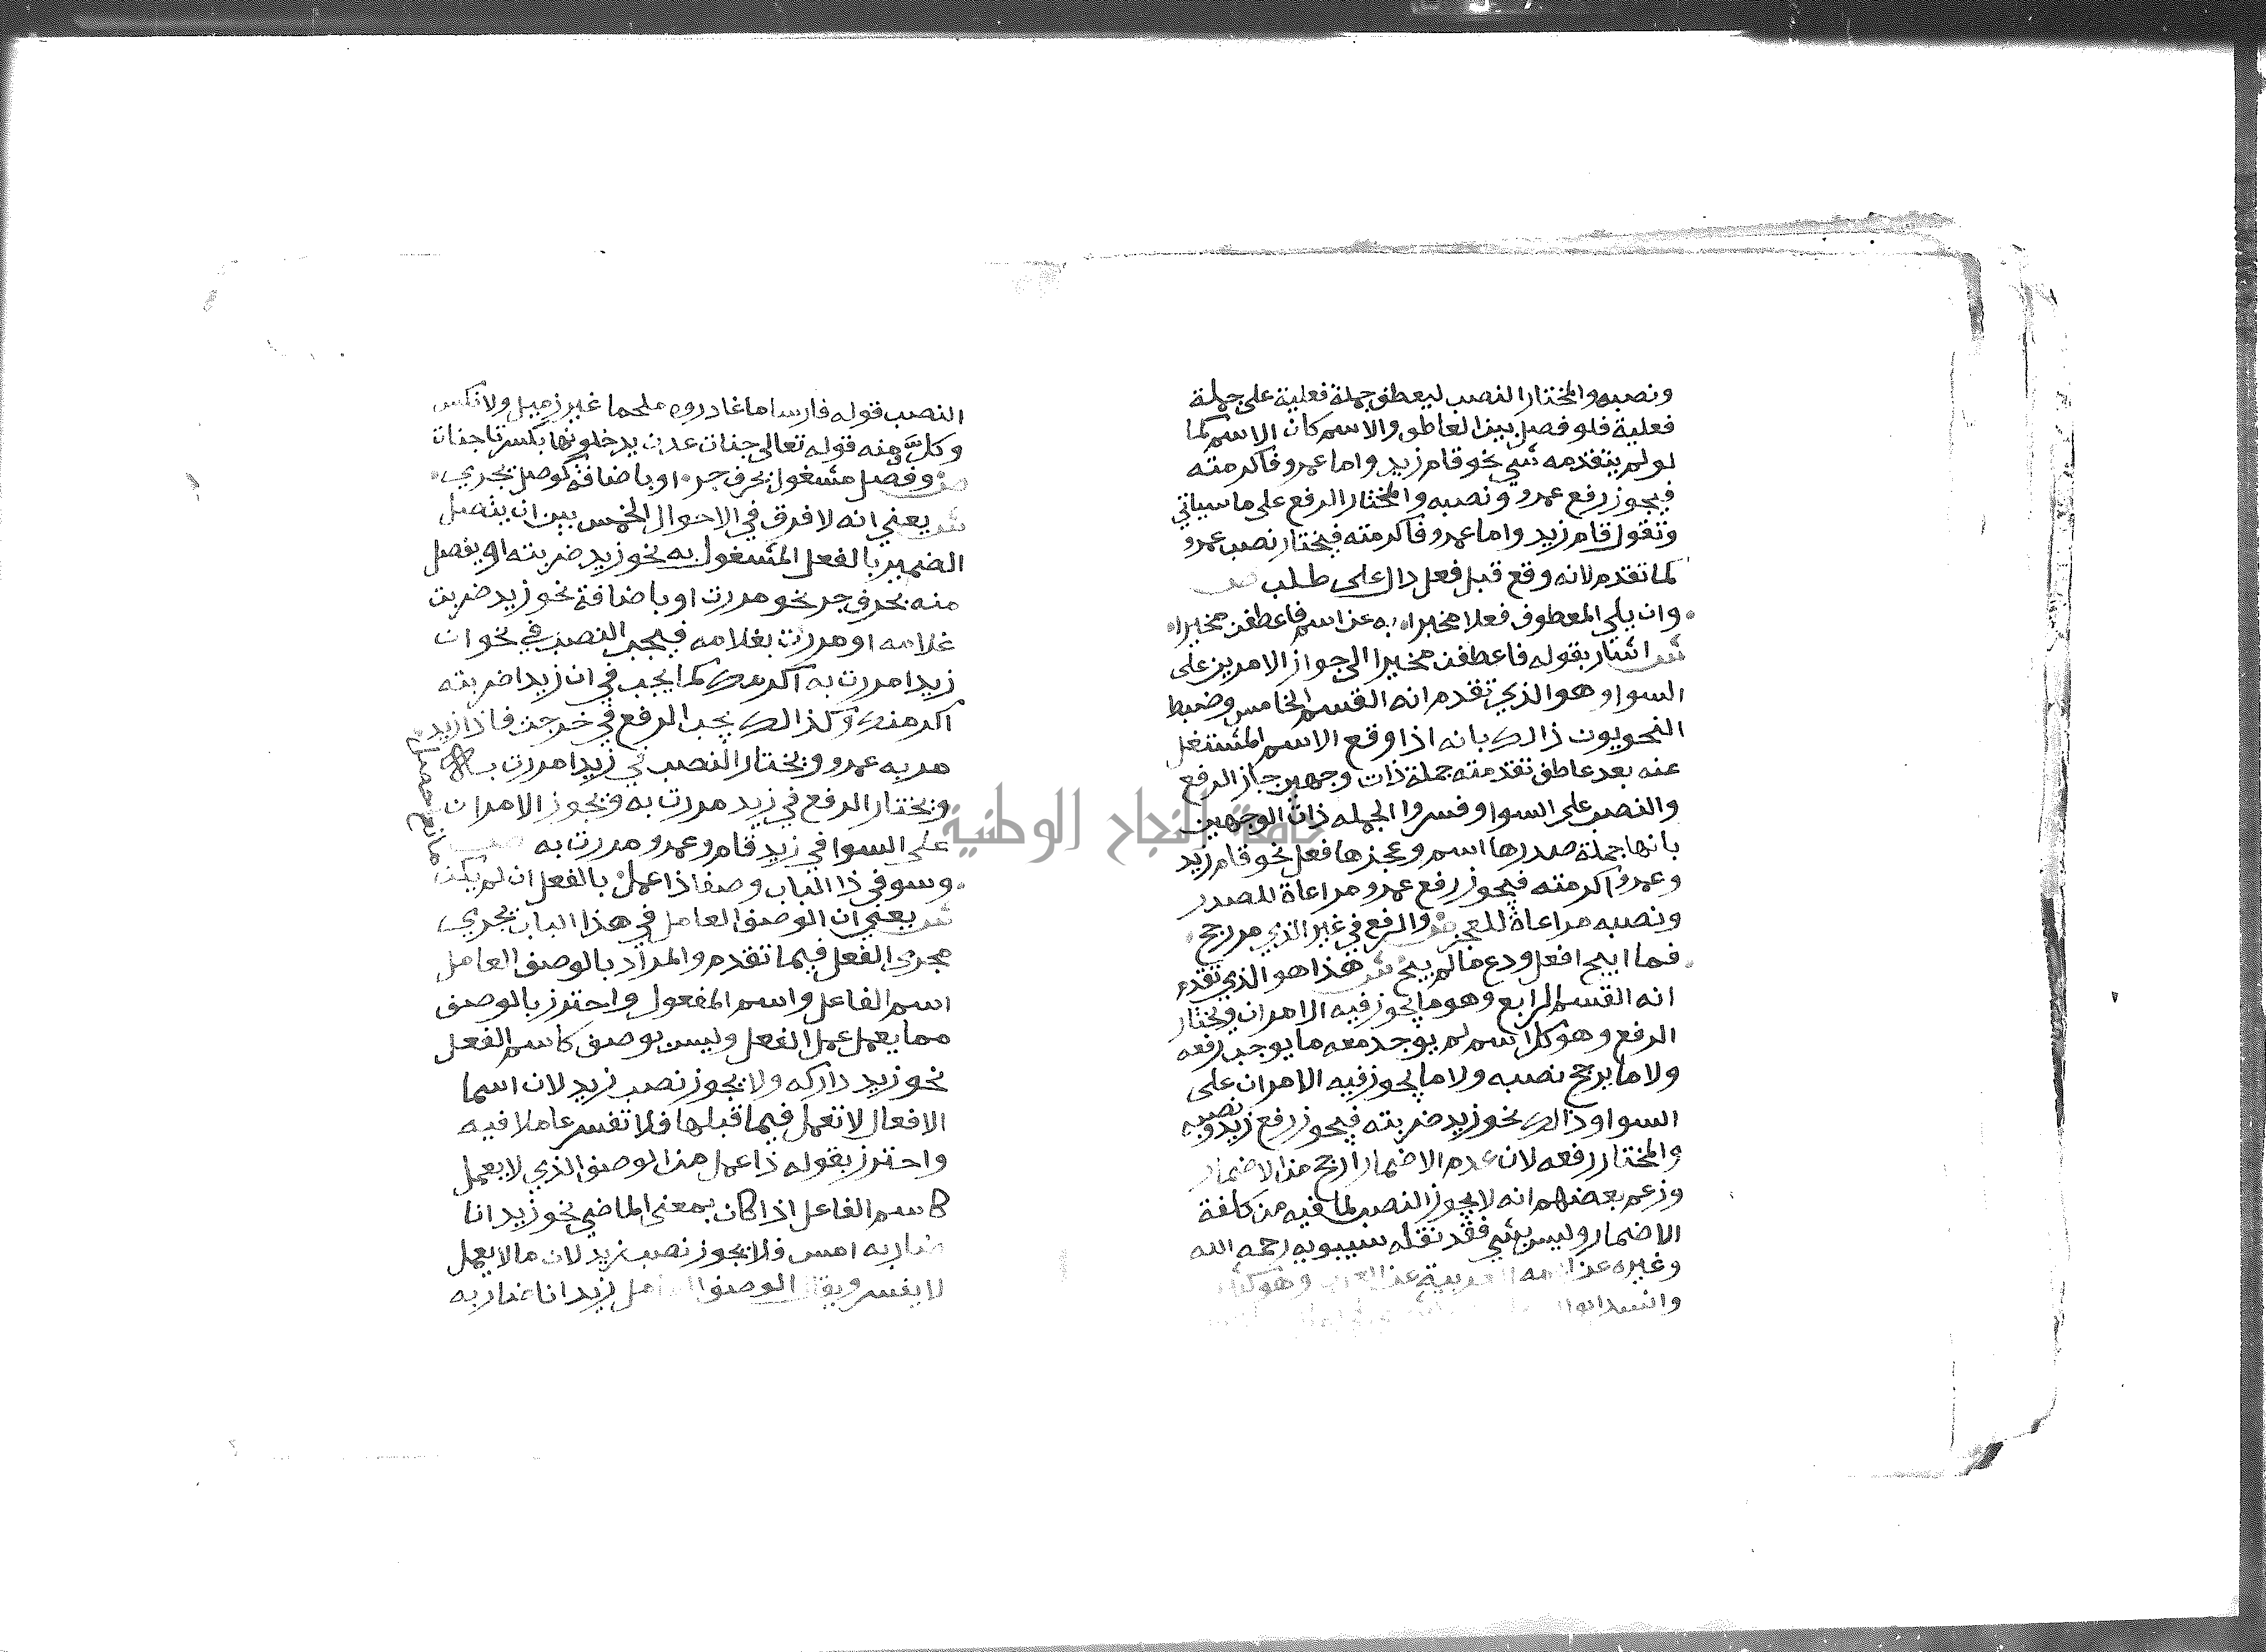 ونصبه والمختار النصب ليعطف جملة فعلية على جملة
فعلية فلو فصل بين العاطف والاسم كان الاسم كما
لو لم يتقدمه شي نحو قام زيد واما عمرو فاكرمته
فيجوز رفع عمرو ونصبه والمختار الرفع على ما سياتي
وتقول قام زيد واما عمرو فاكرمته فيختار نصب عمرو
كما تقدم لانه وقع قبل فعل دال على طلب ص
وان يلي المعطوف فعلا مخبرا به عن اسم فاعطفن مخيرا
ش اشار بقوله فاعطفن مخيرا الى جواز الامرين على
السوا وهو الذي تقدم انه القسم الخامس وضبط
النحويون ذالك بانه اذا وقع الاسم المشتغل
عنه بعد عاطف تقدمته جملة ذات وجهين جاز الرفع
والنصب على السوا وفسروا الجمله ذات الوجهين
بانها جملة صدرها اسم وعجزها فعل نحو قام زيد
وعمرو اكرمته فيجوز رفع عمرو مراعاة للصدر
ونصبه مراعاة للعجز ص والرفع في غير الذي مر رجح
فما ابيح افعل ودع ما لم يبح ش هذا هو الذي تقدم
انه القسم الرابع وهو ما يجوز فيه الامران ويختار
الرفع وهو كل اسم لم يوجد معه ما يوجب رفعه
ولا ما يرجح نصبه ولا ما يجوز فيه الامران على
السوا وذالك نحو زيد ضربته فيجوز رفع زيد ونصبه
والمختار رفعه لان عدم الاضمار ارجح من الاضمار
وزعم بعضهم انه لا يجوز النصب لما فيه من كلفة
الاضمار وليس بشي فقد نقله سيبويه رحمه الله
وغيره عن العربية عن العرب وهو
وانشد ابو
النصب قوله فارسا ما غادروه ملحما غير زميل ولا نكس
وكل ومنه قوله تعالى جنات عدن يدخلونها بكسر تا جنات
ص وفصل مشغول بحرف جر او باضافة كوصل يجري
ش يعني انه لا فرق في الاحوال الخمس بين ان يتصل
الضمير بالفعل المشغول به نحو زيد ضربته او يفصل
منه بحرف جر نحو مررت او باضافة نحو زيد ضربت
غلامه او مررت بغلامه فيجب النصب في نحو ان
زيدا مررت به اكرمك كما يجب في ان زيدا ضربته
اكرمتك وكذالك يجب الرفع في خرجت فاذا زيد
مر به عمرو ويختار النصب في زيدا مررت به
ويختار الرفع في زيد مررت به ويجوز الامران
على السوا في زيد قام وعمرو مررت به ص
وسو في ذا الباب وصفا ذا عمل بالفعل ان لم يكن
مانع حصل
ش يعني ان الوصف العامل في هذا الباب يجري
مجرى الفعل فيما تقدم والمراد بالوصف العامل
اسم الفاعل واسم المفعول واحترز بالوصف
مما يعمل عمل الفعل وليس بوصف كاسم الفعل
نحو زيد داركه ولا يجوز نصب زيد لان اسما
الافعال لا تعمل فيما قبلها فلا تفسر عاملا فيه
واحترز بقوله ذا عمل من الوصف الذي لا يعمل
كاسم الفاعل اذا كان بمعنى الماضي نحو زيد انا
ضاربه امس فلا يجوز نصب زيد لان ما لا يعمل
لا يفسر الوصف العامل زيد انا ضاربه
جامعة النجاح الوطنية